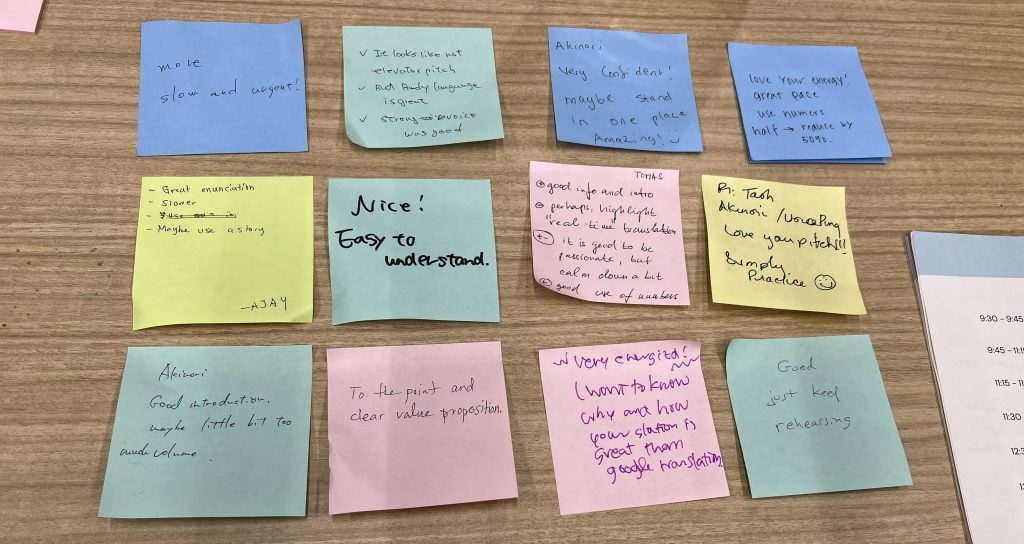 more
slow and urgent!
✓ It looks like not
elevator pitch
✓ But Body language
is great
✓ Strong voice
was good
Akinori
Very Confident!
maybe stand
in one place
Amazing!
love your energy!
great pace
use numers
half → reduce by
50%.
- Great enunciation
- Slower
- Maybe use a story
- AJAY
Nice!
Easy to
understand.
TOMAS
good info and intro
perhaps, highlight
"real-time translation
it is good to be
passionate, but
calm down a bit
good use of numbers
Tash
Akinori / VoicePing
Love your pitch!!!
Simply
Practice
Akinori
Good introduction.
maybe little bit too
much volume.
To the point and
clear value proposition.
Very energized!
I want to know
why and how
your slation is
great them
google translation
Good
just keep
rehearsing
9:30 - 9:45
9:45 - 11:15
11:15 - 11
11:30
12: